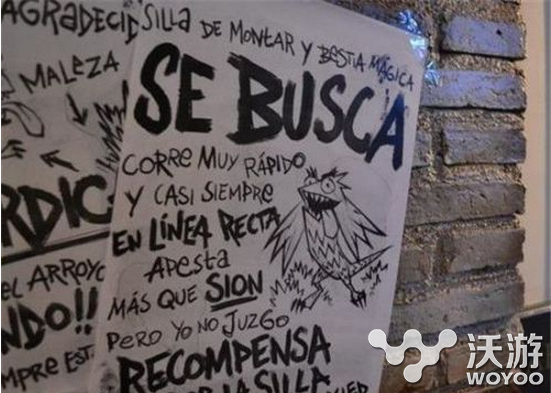 AGRADECID
MALEZA
RDIC
EL ARROYO
NDO!!
MPRE EST
SILLA DE MONTAR Y BESTIA MÁGICA
SE BUSCA
CORRE MUY RÁPIDO
Y CASI SIEMPRE
EN LÍNEA RECTA
APESTA
MÁS QUE SION
PERO YO NO JUZGO
RECOMPENSA
POR LA SILLA
沃游
WOYOO